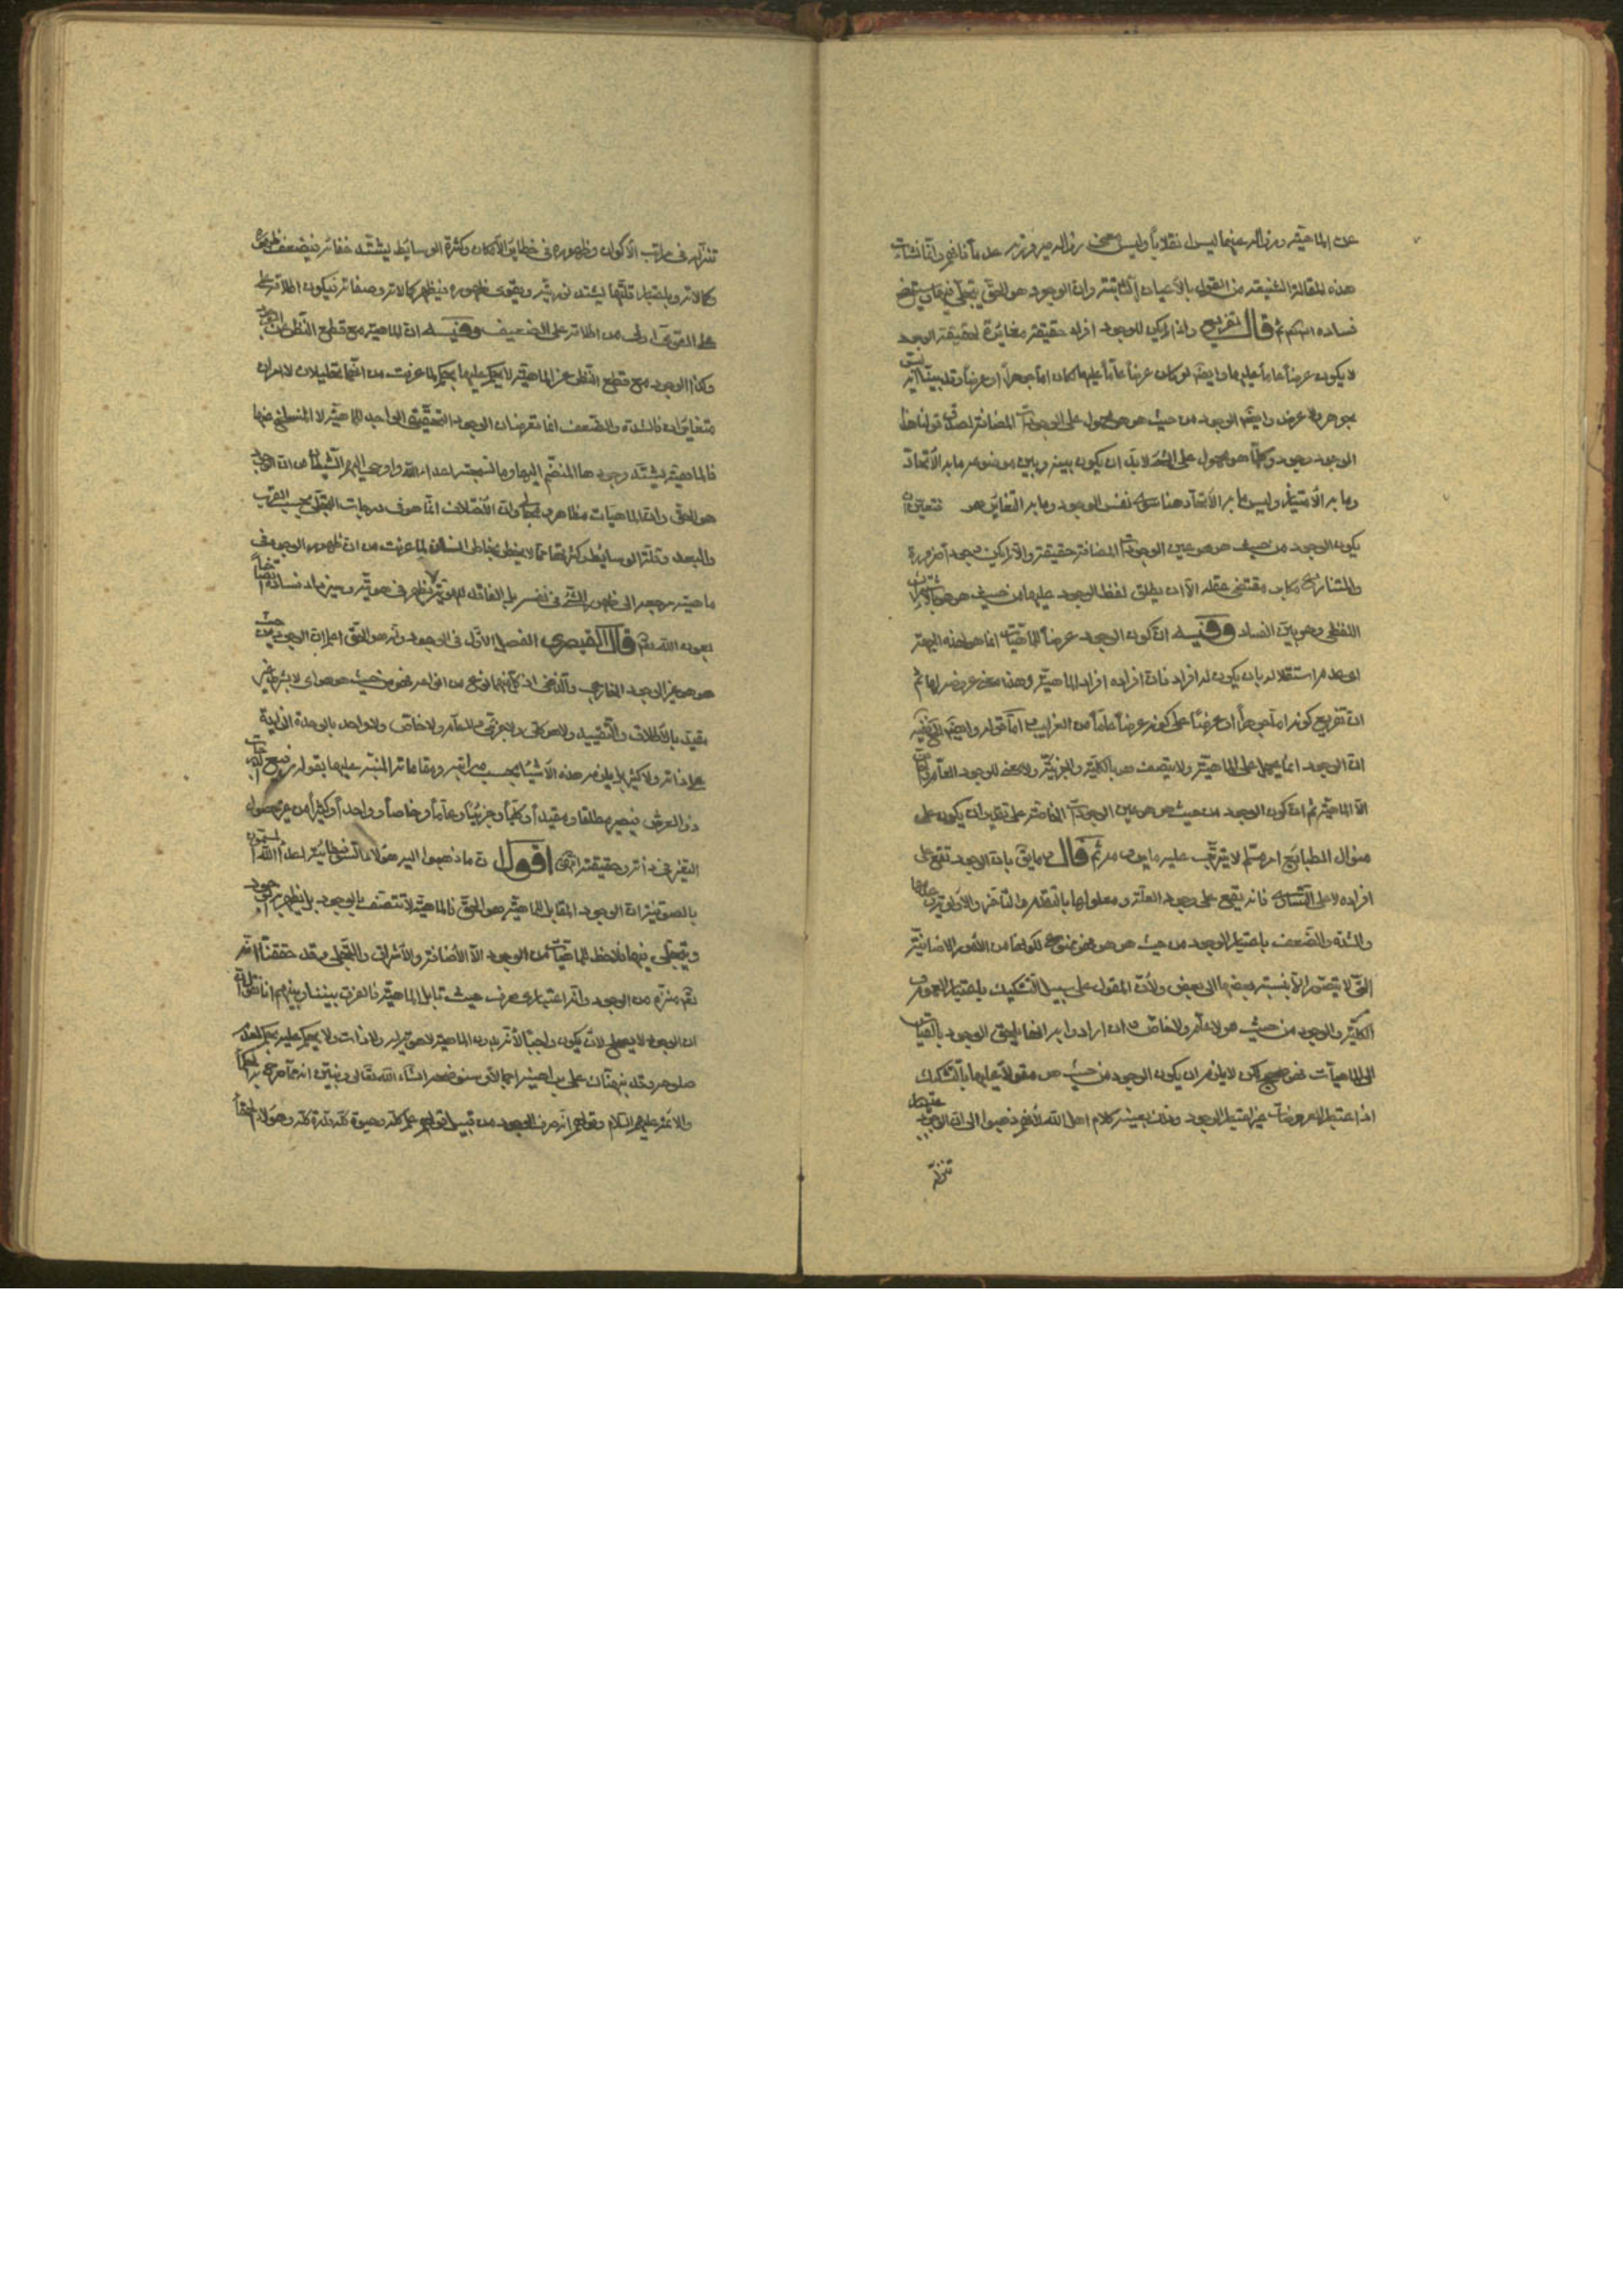 عن الماهية وزواله عنهما ليس انقلاباً وليس معنى زواله صيرورته عدماً فافهم وانما نشأت
هذه المقالة الشنيعة من القول بالأعيان الثابتة وان الوجود هو الحق يتجلى فيها وسيتضح
فساده انتهى ثم قال تفريع واذا لم يكن للوجود افراد حقيقة مغايرة لحقيقة الوجود
لا يكون عرضاً عاماً عليها وايضا لو كان عرضاً عاماً عليها لكان اما جوهراً او عرضاً وقد بينا انه ليس
بجوهر ولا عرض وايضا الوجود من حيث هو هو محمول على الوجودات المضافة لصدق قولنا هذا
الوجود وجود وكلما هو محمول على الشئ لابد ان يكون بينه وبين موضوعه ما به الاتحاد
وما به الامتياز وليس ما به الاتحاد هنا سوى نفس الوجود وما به التغاير هو فتعين ان
يكون الوجود من حيث هو هو عين الوجودات المضافة حقيقة والا لم يكن وجوداً ضرورة
والمنازع مكابر مقتضى عقله الا ان يطلق لفظ الوجود عليها من حيث هو هو بالاشتراك
اللفظي وهو بين الفساد وفيه ان كون الوجود عرضاً للماهيات انما هو لهذه الجهة
اي عدم استقلاله بان يكون له افراد فان افراده افراد الماهية وهذا معنى عروضه لها ثم
ان تفريع كونه اما جوهراً او عرضاً على كونه عرضاً عاماً من الغرايب اما قوله وايضا الخ ففيه
ان الوجود انما يحمل على الماهية ولا يتصف هو بالكلية والجزئية ولا معنى للوجود العام والخاص
الا الماهية ثم ان كون الوجود من حيث هو هو عين الوجودات الخاصة على تقدير ان يكون على
منوال الطبايع امر مسلم لا يترتب عليه ما يرومه ثم قال وما يقال بان الوجود تقع على
افراده لا على التساوي فانه يقع على وجود العلة ومعلولها بالتقدم والتاخر والاولوية وعدمها
والشدة والضعف باعتبار الوجود من حيث هو هو ممنوع لكونها من الامور الاضافية
التي لا يتصور الا بنسبة بعضها الى بعض ولان المقول على سبيل التشكيك باعتبار العموم
الكلية والوجود من حيث هو لا عام ولا خاص وان ارادوا به انها يلحق الوجود بالقياس
الى الماهيات فهو صحيح لكن لا يلزم ان يكون الوجود من حيث هو مقولاً عليها بالتشكيك
اذ اعتبار المعروضات غير اعتبار الوجود وذلك بعينه كلام اهل الله لانهم ذهبوا الى ان الوجود باعتبار
تنزله
تنزله في مراتب الأكوان وظهوره في حظاير الامكان وكثرة الوسايط يشتد خفائه فيضعف ظهوره
وكمالاته وباعتبار قلتها يشتد نوريته ويقوى ظهوره فيظهر كمالاته وصفاته فيكون اطلاقه
على القوي اولى من اطلاقه على الضعيف وفيه ان الماهية مع قطع النظر عن الوجود
وكذا الوجود مع قطع النظر عن الماهية لا يحكم عليها بحكم لما عرفت من انهما تحليليان لا امران
متغايران فالشدة والضعف انما تعرضان الوجود التحققي الواحد للماهية لا المنسلخ عنها
فالماهية يشتد وجودها المنضم اليها وما نسجته اعداء الله واوحى اليهم الشيطان من ان الوجود
هو الحق وان الماهيات مظاهره ومجاليه وان الاختلاف انما هو في درجات التجلي بحسب القرب
والبعد وقلة الوسايط وكثرتها مما لا يخطر بخاطر انسان لما عرفت من ان ظهور الوجود في
ماهيته مرجعه الى ظهور الشئ في نفسه بل الغائله ان هويته يظهر في هويته وسيزداد فساده اتضاحاً
بعون الله ثم قال القيصري الفصل الاول في الوجود وانه هو الحق اعلم ان الوجود من حيث
هو هو غير الوجود الخارجي والذهني اذ كل منهما نوع من انواعه فهو من حيث هو هو اي لا بشرط شئ غير
مقيد بالاطلاق والتقييد ولا هو كلي ولا جزئي ولا عام ولا خاص ولا واحد بالوحدة الزايدة
على ذاته ولا كثير بل يلزمه هذه الاشياء بحسب مراتبه ومقاماته المنبه عليها بقوله رفيع الدرجات
ذو العرش فيصير مطلقا ومقيداً وكلياً وجزئياً وعاماً وخاصاً وواحداً وكثيراً من غير حصول
التغير في ذاته وحقيقته انتهى اقول ان ما ذهبوا اليه هؤلاء اتباع اعداء الله المسمون
بالصوفية ان الوجود المقابل للماهية هو الحق فالماهية لا تتصف بالوجود بل يظهر الوجود
ويتجلى فيها فلا حظ للماهيات من الوجود الا الاضافة والاشراق والتجلي وقد حققنا انه
نقم منتزع من الوجود وانه اعتباري صرف حيث تقابل الماهية فالفرق بيننا وبينهم انا نقول
ان الوجود لا يصلح لان يكون واجباً لانه بدون الماهية لا هوية له ولا ذات ولا يحكم عليه بحكم
صلوحه وقد نبهناك على براهينه اجمالا وسنوضحه انشاء الله تعالى ونبين انه مما صرح به
والائمة عليهم السلام وقولهم انه صرف الوجود من قبيل قولهم علم كله وحيوة كله وقدرة كله وهؤلاء